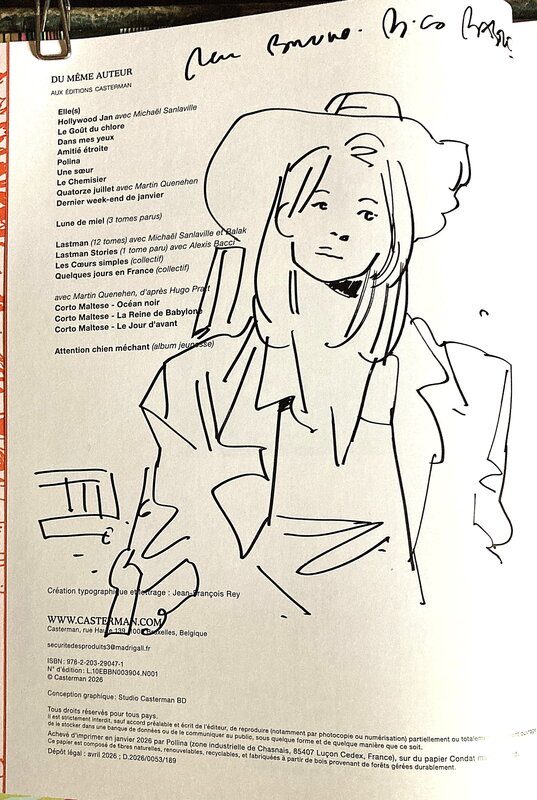 DU MÊME AUTEUR
AUX ÉDITIONS CASTERMAN
Elle(s)
Hollywood Jan avec Michaël Sanlaville
Le Goût du chlore
Dans mes yeux
Amitié étroite
Polina
Une sœur
Le Chemisier
Quatorze juillet avec Martin Quenehen
Dernier week-end de janvier
Lune de miel (3 tomes parus)
Lastman (12 tomes) avec Michaël Sanlaville et Balak
Lastman Stories (1 tome paru) avec Alexis Bacci
Les Cœurs simples (collectif)
Quelques jours en France (collectif)
avec Martin Quenehen, d'après Hugo Pratt
Corto Maltese - Océan noir
Corto Maltese - La Reine de Babylone
Corto Maltese - Le Jour d'avant
Attention chien méchant (album jeunesse)
Création typographique et lettrage : Jean-François Rey
WWW.CASTERMAN.COM
Casterman, rue Haute 139, 1000 Bruxelles, Belgique
securitedesproduits3@madrigall.fr
ISBN : 978-2-203-29047-1
N° d'édition : L.10EBBN003904.N001
© Casterman 2026
Conception graphique : Studio Casterman BD
Tous droits réservés pour tous pays.
Il est strictement interdit, sauf accord préalable et écrit de l'éditeur, de reproduire (notamment par photocopie ou numérisation) partiellement ou totalement
de le stocker dans une banque de données ou de le communiquer au public, sous quelque forme et de quelque manière que ce soit.
Achevé d'imprimer en janvier 2026 par Pollina (zone industrielle de Chasnais, 85407 Luçon Cedex, France), sur du papier Condat
Ce papier est composé de fibres naturelles, renouvelables, recyclables, et fabriquées à partir de bois provenant de forêts gérées durablement.
Dépôt légal : avril 2026 ; D.2026/0053/189